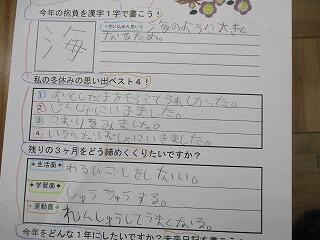 今年の抱負を漢字1字で書こう!
海
<字に込めた思い>
海のように大きく
なるため。
私の冬休みの思い出ベスト4!
1 おとしだまをもらってうれしかった。
2 じんじゃにいきました。
3 こおりをみました。
4 いろんなおみせにいきました。
残りの3ヶ月をどう締めくくりたいですか?
生活面
わるいことをしない。
学習面
しゅうちゅうする。
運動面
れんしゅうしてうまくなる。
今年をどんな1年にしたいですか?未来日記を書こう